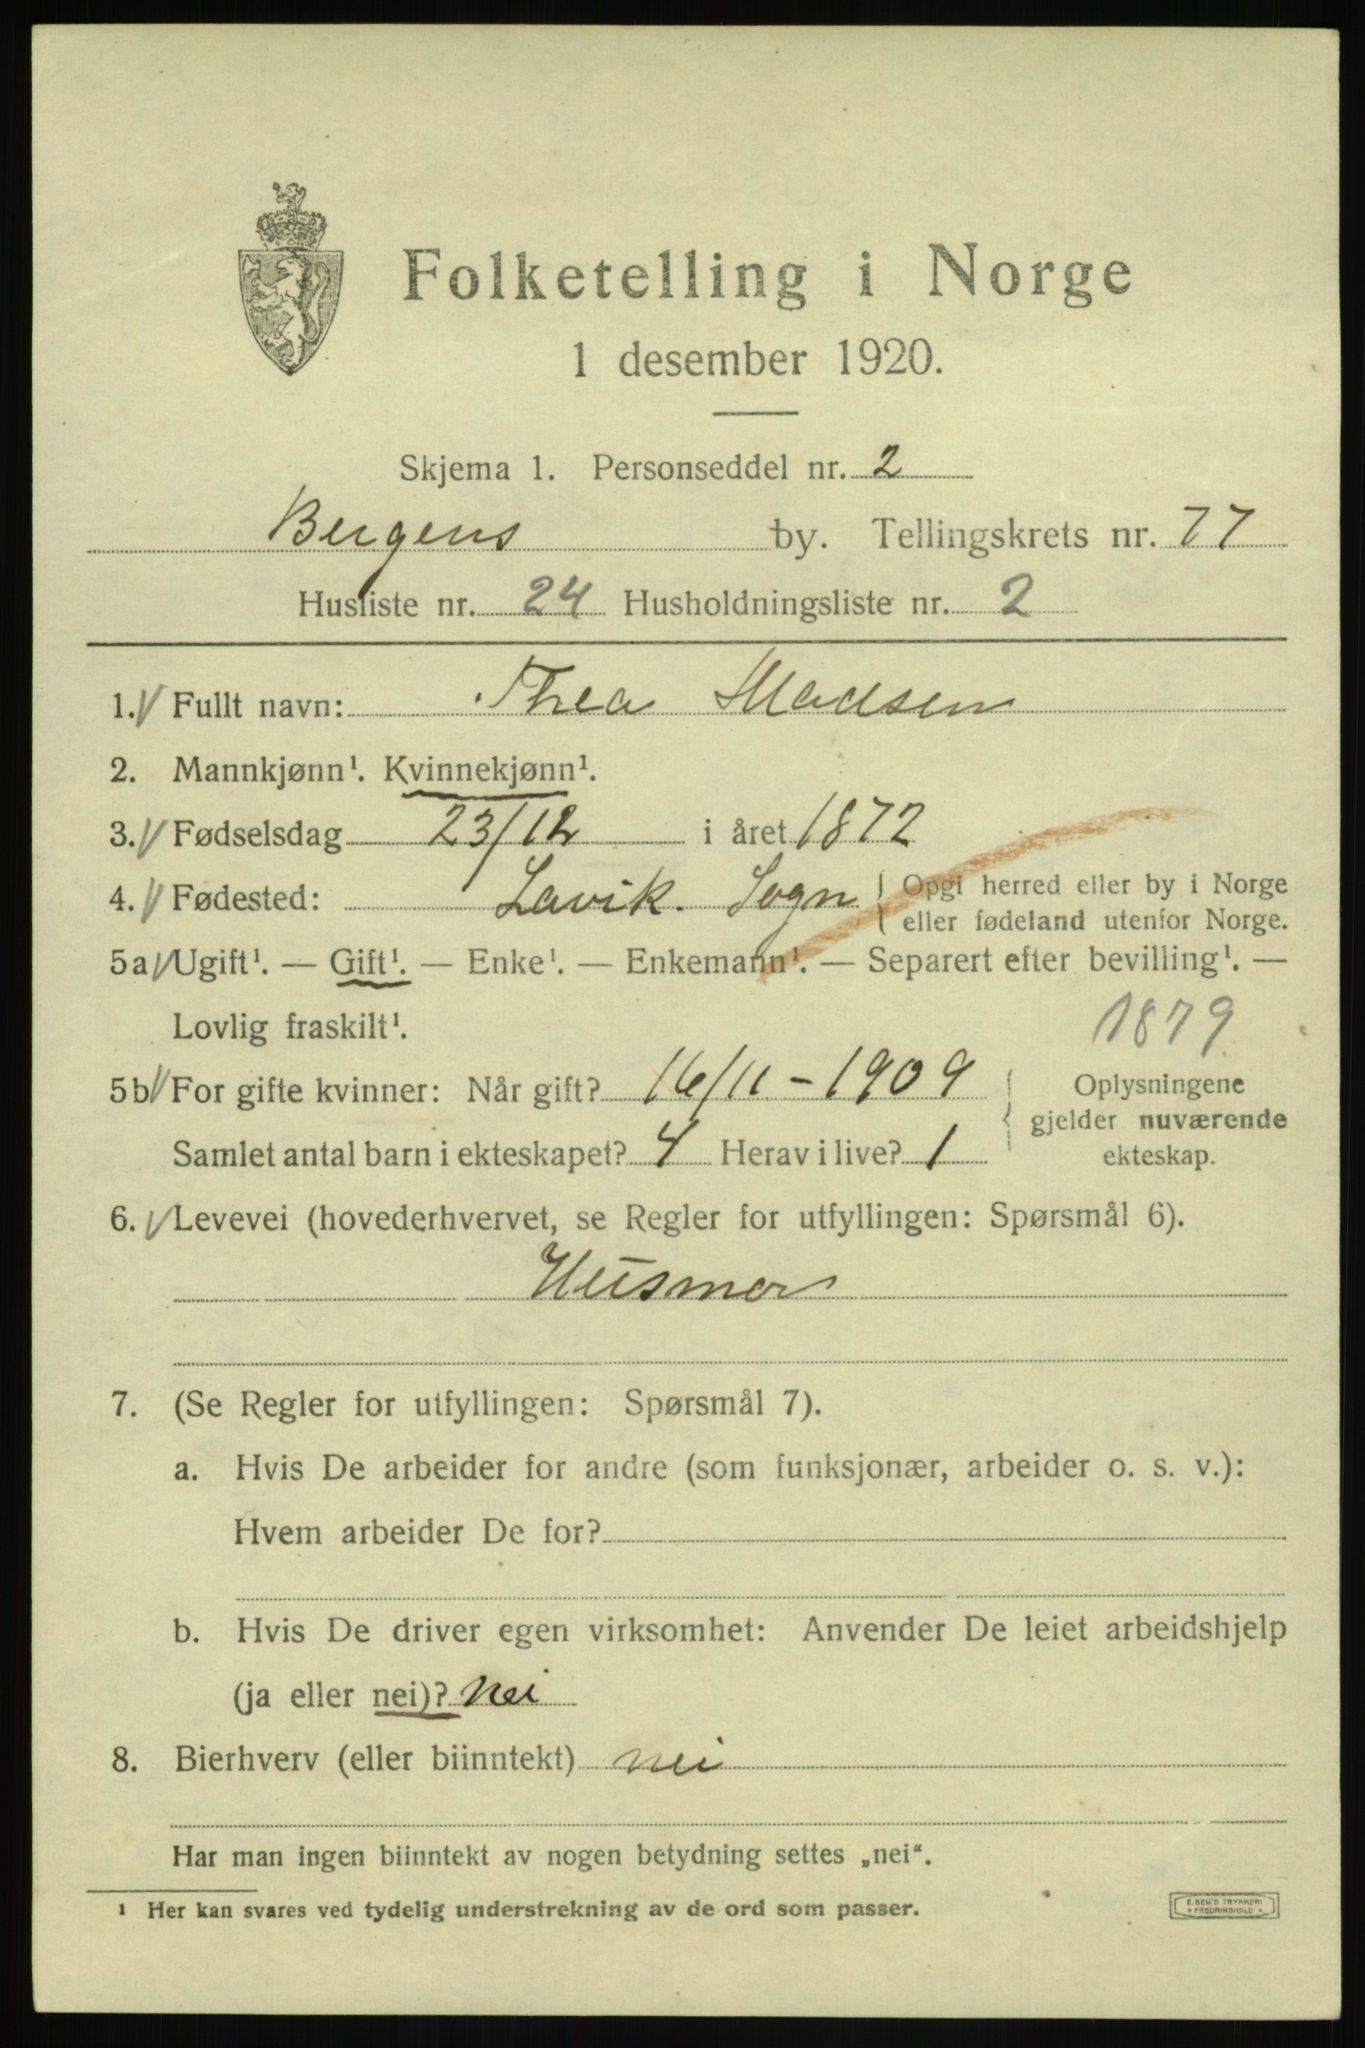 Folketelling i Norge
1 desember 1920.
Skjema 1. Personseddel nr. 2
Bergens by. Tellingskrets nr. 77
Husliste nr. 24 Husholdningsliste nr. 2
1. Fullt navn: Thea Madsen
2. Mannkjønn¹. Kvinnekjønn¹.
3. Fødselsdag 23/12 i året 1872
4. Fødested: Lavik. Sogn { Opgi herred eller by i Norge
eller fødeland utenfor Norge.
5a Ugift¹. — Gift¹. — Enke¹. — Enkemann¹. — Separert efter bevilling¹. —
Lovlig fraskilt¹.
1879
5b For gifte kvinner: Når gift? 16/11 - 1909
Samlet antal barn i ekteskapet? 4 Herav i live? 1
{ Oplysningene
gjelder nuværende
ekteskap.
6. Levevei (hovederhvervet, se Regler for utfyllingen: Spørsmål 6).
Husmor
7. (Se Regler for utfyllingen: Spørsmål 7).
a. Hvis De arbeider for andre (som funksjonær, arbeider o. s. v.):
Hvem arbeider De for?
b. Hvis De driver egen virksomhet: Anvender De leiet arbeidshjelp
(ja eller nei)? nei
8. Bierhverv (eller biinntekt) nei
Har man ingen biinntekt av nogen betydning settes „nei“.
¹ Her kan svares ved tydelig understrekning av de ord som passer.
E. SEM'S TRYKKERI
• FREDRIKSHALD •